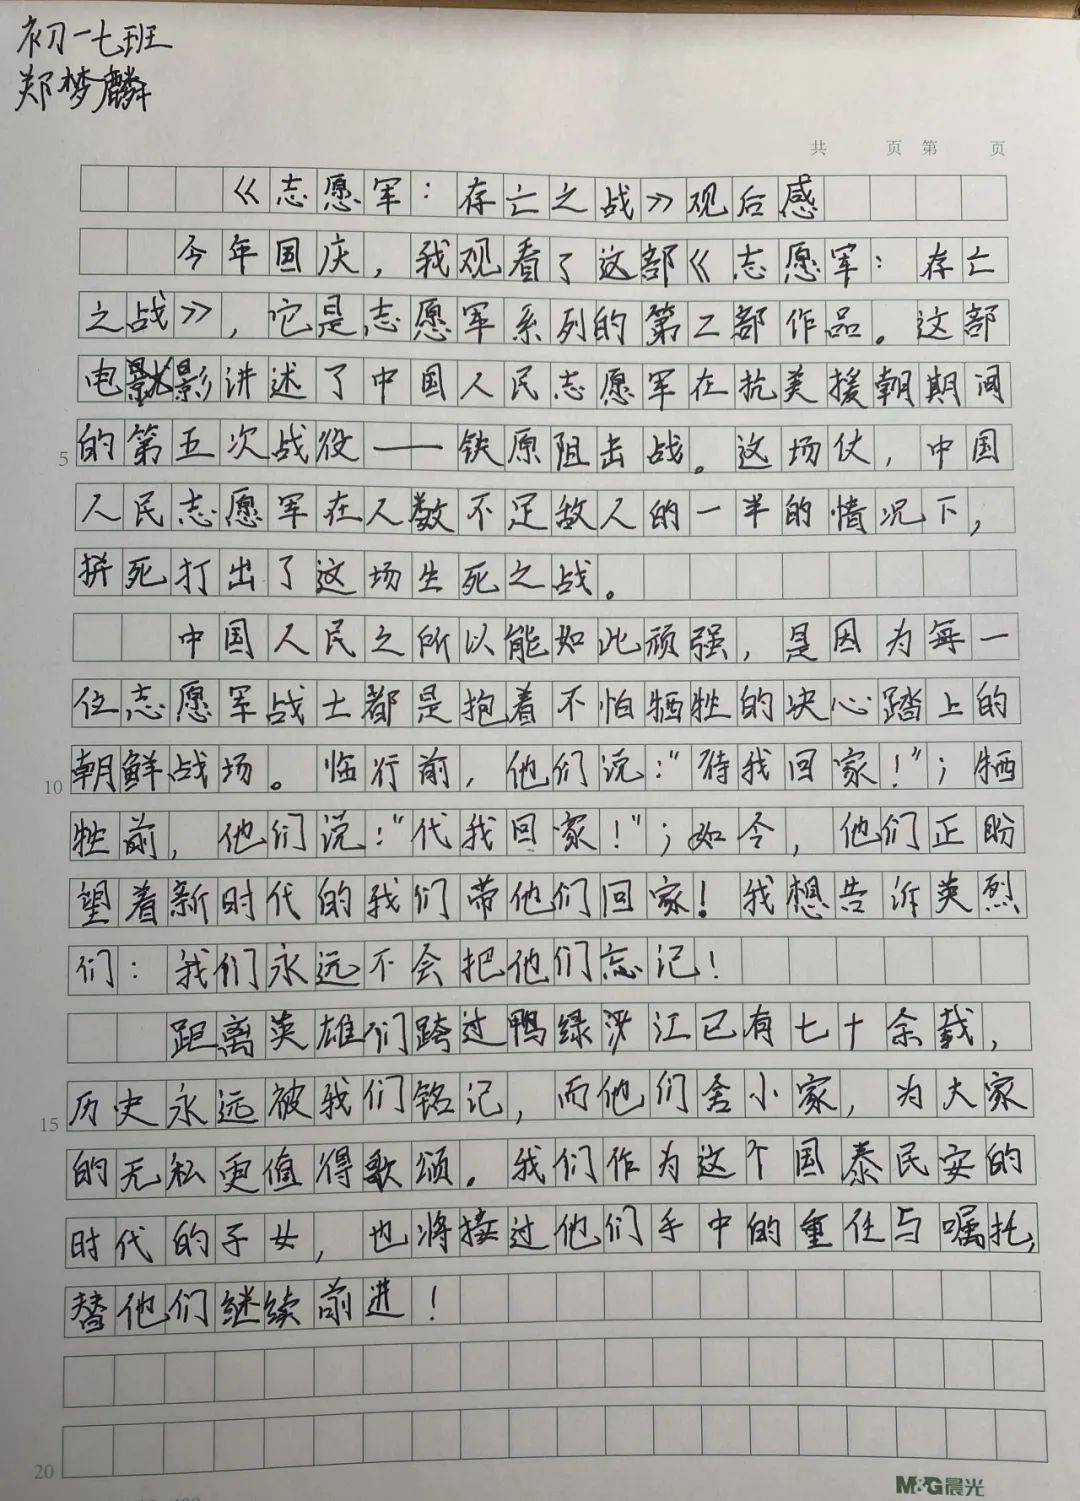 初一七班
郑梦麟
共 页 第 页
《志愿军：存亡之战》观后感
今年国庆，我观看了这部《志愿军：存亡
之战》，它是志愿军系列的第二部作品。这部
电影讲述了中国人民志愿军在抗美援朝期间
5 的第五次战役——铁原阻击战。这场仗，中国
人民志愿军在人数不足敌人的一半的情况下，
拼死打出了这场生死之战。
中国人民之所以能如此顽强，是因为每一
位志愿军战士都是抱着不怕牺牲的决心踏上的
10 朝鲜战场。临行前，他们说：“待我回家！”；牺
牲前，他们说：“代我回家！”；如今，他们正盼
望着新时代的我们带他们回家！我想告诉英烈
们：我们永远不会把他们忘记！
距离英雄们跨过鸭绿江已有七十余载，
15 历史永远被我们铭记，而他们舍小家，为大家
的无私更值得歌颂。我们作为这个国泰民安的
时代的子女，也将接过他们手中的重任与嘱托，
替他们继续前进！
20
M&G晨光